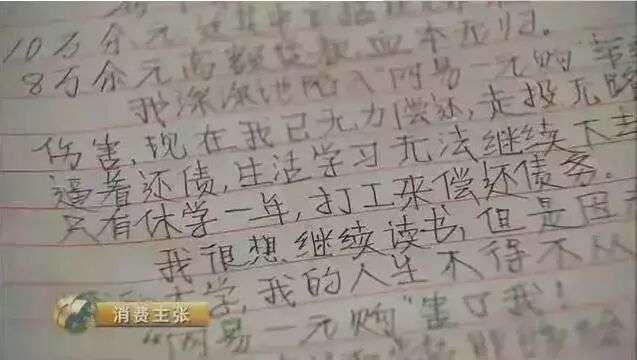 10万余元
8万余元高额贷款,血本无归。
我深深地陷入网易一元购"
伤害,现在我已无力偿还,走投无路
逼着还债,生活学习无法继续下去
只有休学一年,打工来偿还债务。
我很想继续读书,但是因
大学,我的人生不得不从
"网易一元购"害了我!
消费主张